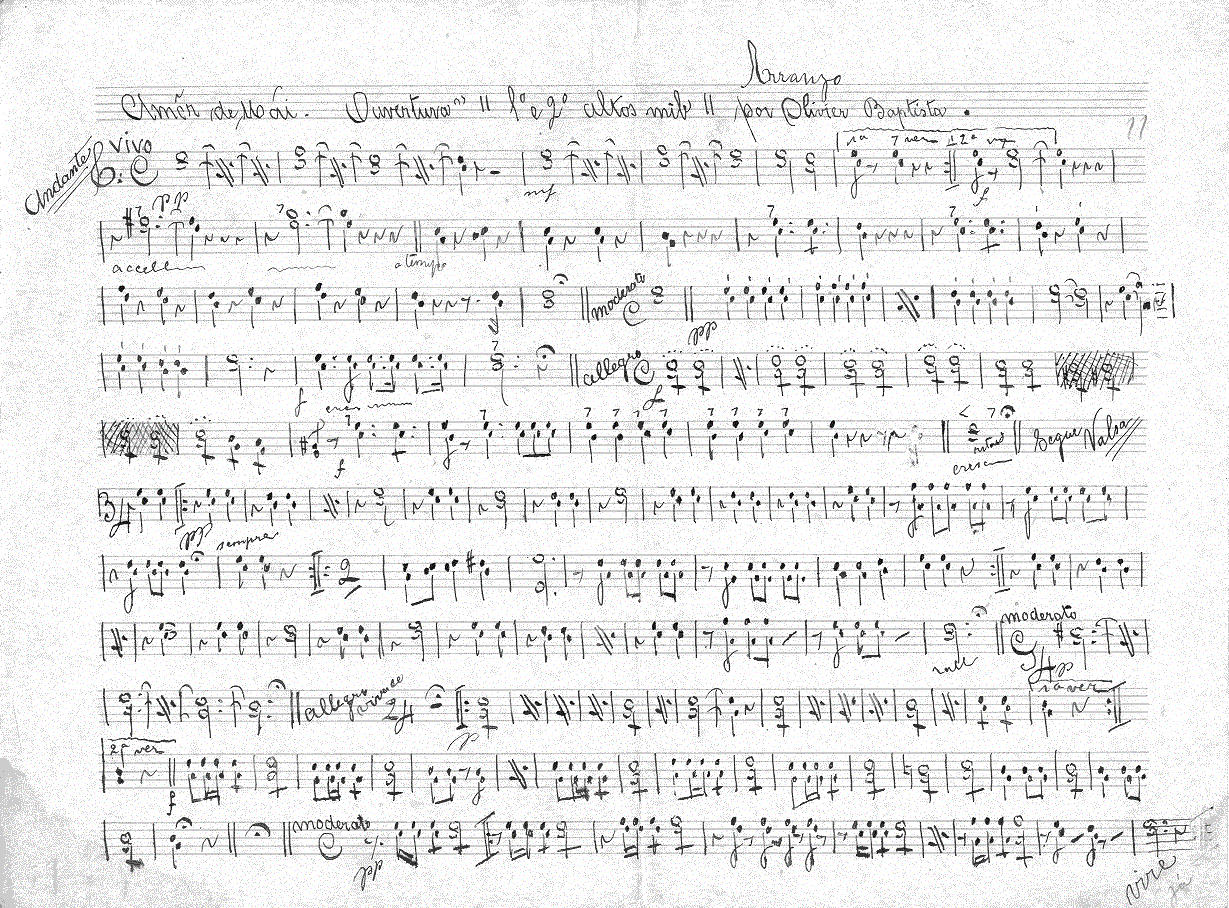 Arranzo
Amôr de Mãi. Ouvertura" || 1º e 2º altos mib || por Olivier Baptista.
11
Andante vivo
1ª ver 2ª ver
mf f
accell a tempo
moderato
allegro
f cres f
f cresc
Segue Valsa
sempre
moderato
rall
allegro vivace 1ª ver
2ª ver
f
moderato
vire já